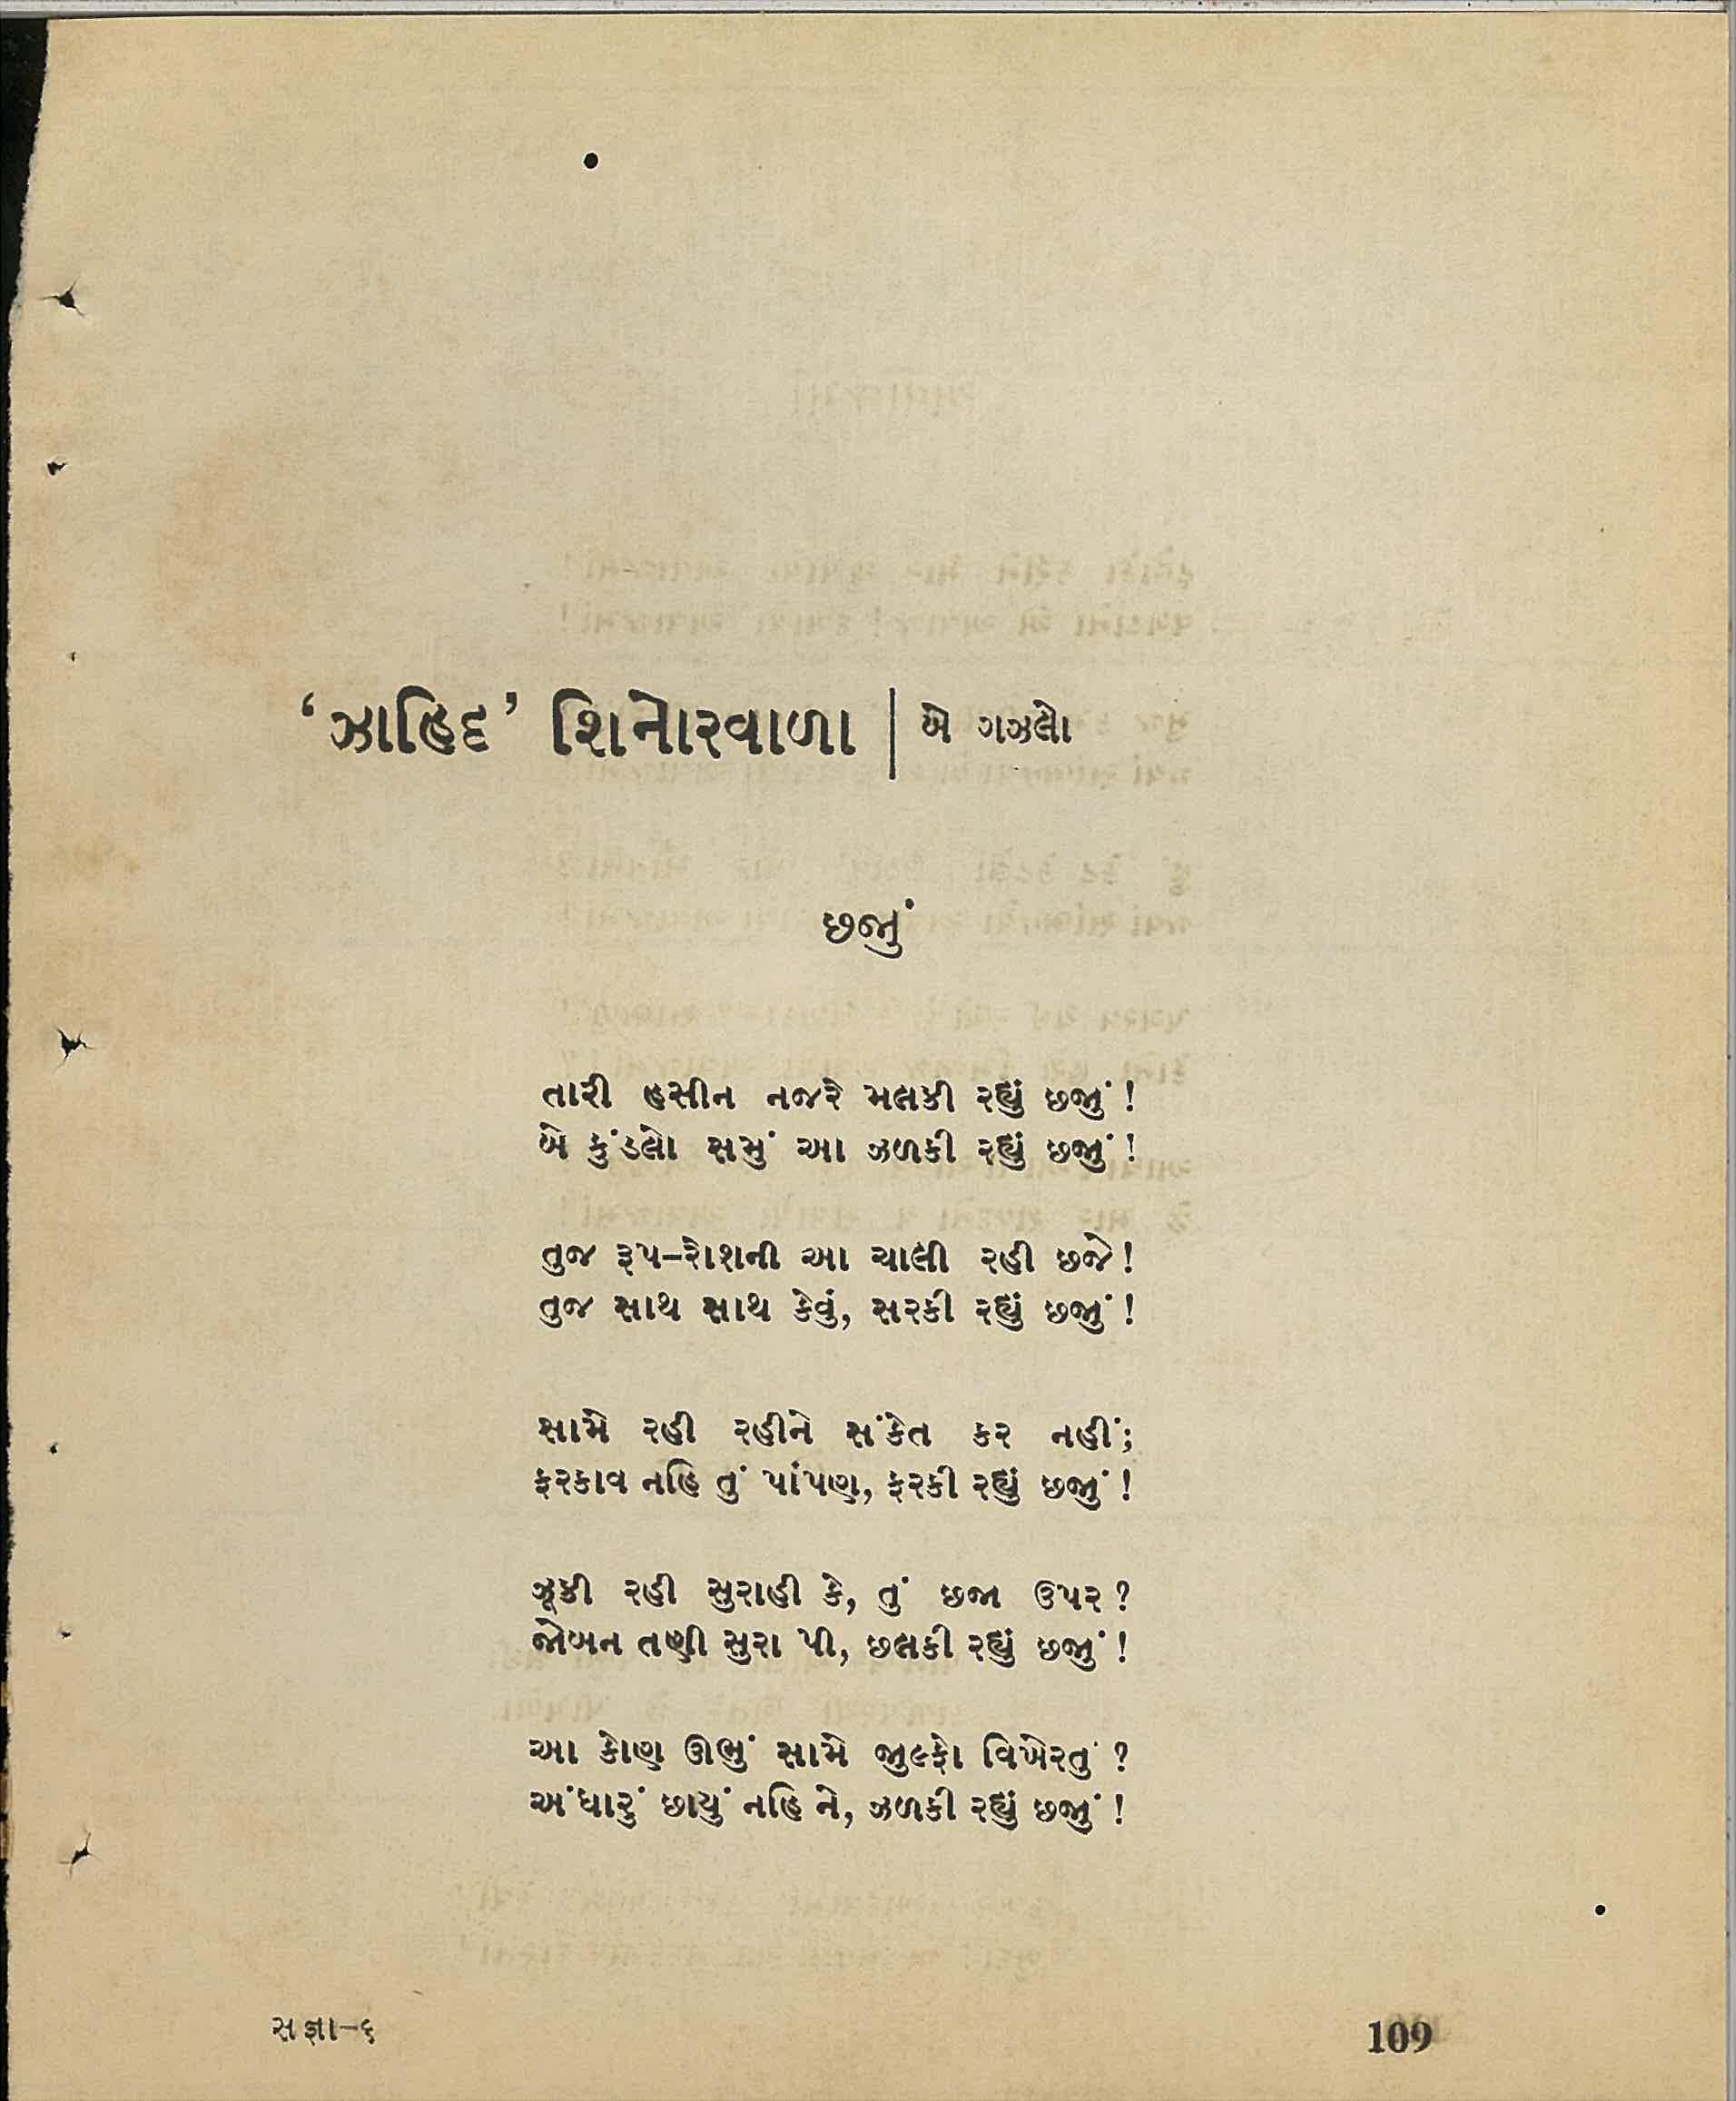 ‘ઝાહિદ’ શિનોરવાળા | બે ગઝલો
છજું
તારી હસીન નજરે મલકી રહ્યું છજું!
બે કુંડલો સમું આ ઝળકી રહ્યું છજું!
તુજ રૂપ–રોશની આ ચાલી રહી છજે!
તુજ સાથ સાથ કેવું, સરકી રહ્યું છજું!
સામે રહી રહીને સંકેત કર નહીં;
ફરકાવ નહિ તું પાંપણ, ફરકી રહ્યું છજું!
ઝૂકી રહી સુરાહી કે, તું છજા ઉપર?
જોબન તણી સુરા પી, છલકી રહ્યું છજું!
આ કોણ ઊભું સામે જુલ્ફો વિખેરતું?
અંધારું છાયું નહિ ને, ઝળકી રહ્યું છજું!
સંજ્ઞા–૬
109